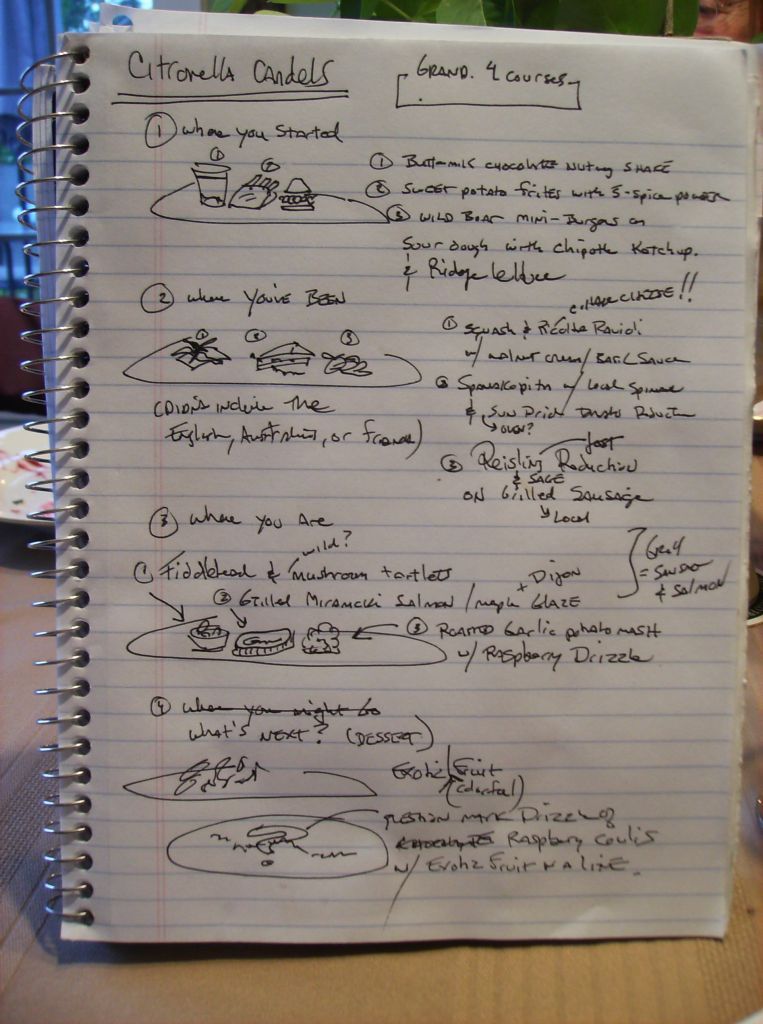 Citronella Candels
GRAND. 4 courses
① Where you Started
① Buttermilk chocolate Nutmeg SHAKE
② Sweet potato frites with 5-spice powder
③ Wild Boar mini-Burgers on
Sour dough with Chipotle Ketchup.
& Ridge lettuce
② where You've BEEN
HAVE CHEESE!!
① Squash & Ricotta Ravioli
w/ walnut cream/Basil Sauce
② Spanakopita w/ local Spinach
& Sun Dried Tomato Reduction
↳ oven?
English, Australian, or France)
③ Reisling Reduction
& SAGE
ON Grilled Sausage
↳ Local
③ Where You Are
wild?
① Fiddlehead & mushroom tartlets
+ Dijon
② Grilled Miramichi Salmon / maple GLAZE
Grill
= Sausage
& Salmon
③ Roasted Garlic potato mash
w/ Raspberry Drizzle
④ where you might Go
what's NEXT? (DESSERT)
Exotic Fruit
(colorful)
question mark Drizzle of
chocolate Raspberry Coulis
w/ Exotic Fruit in a line.